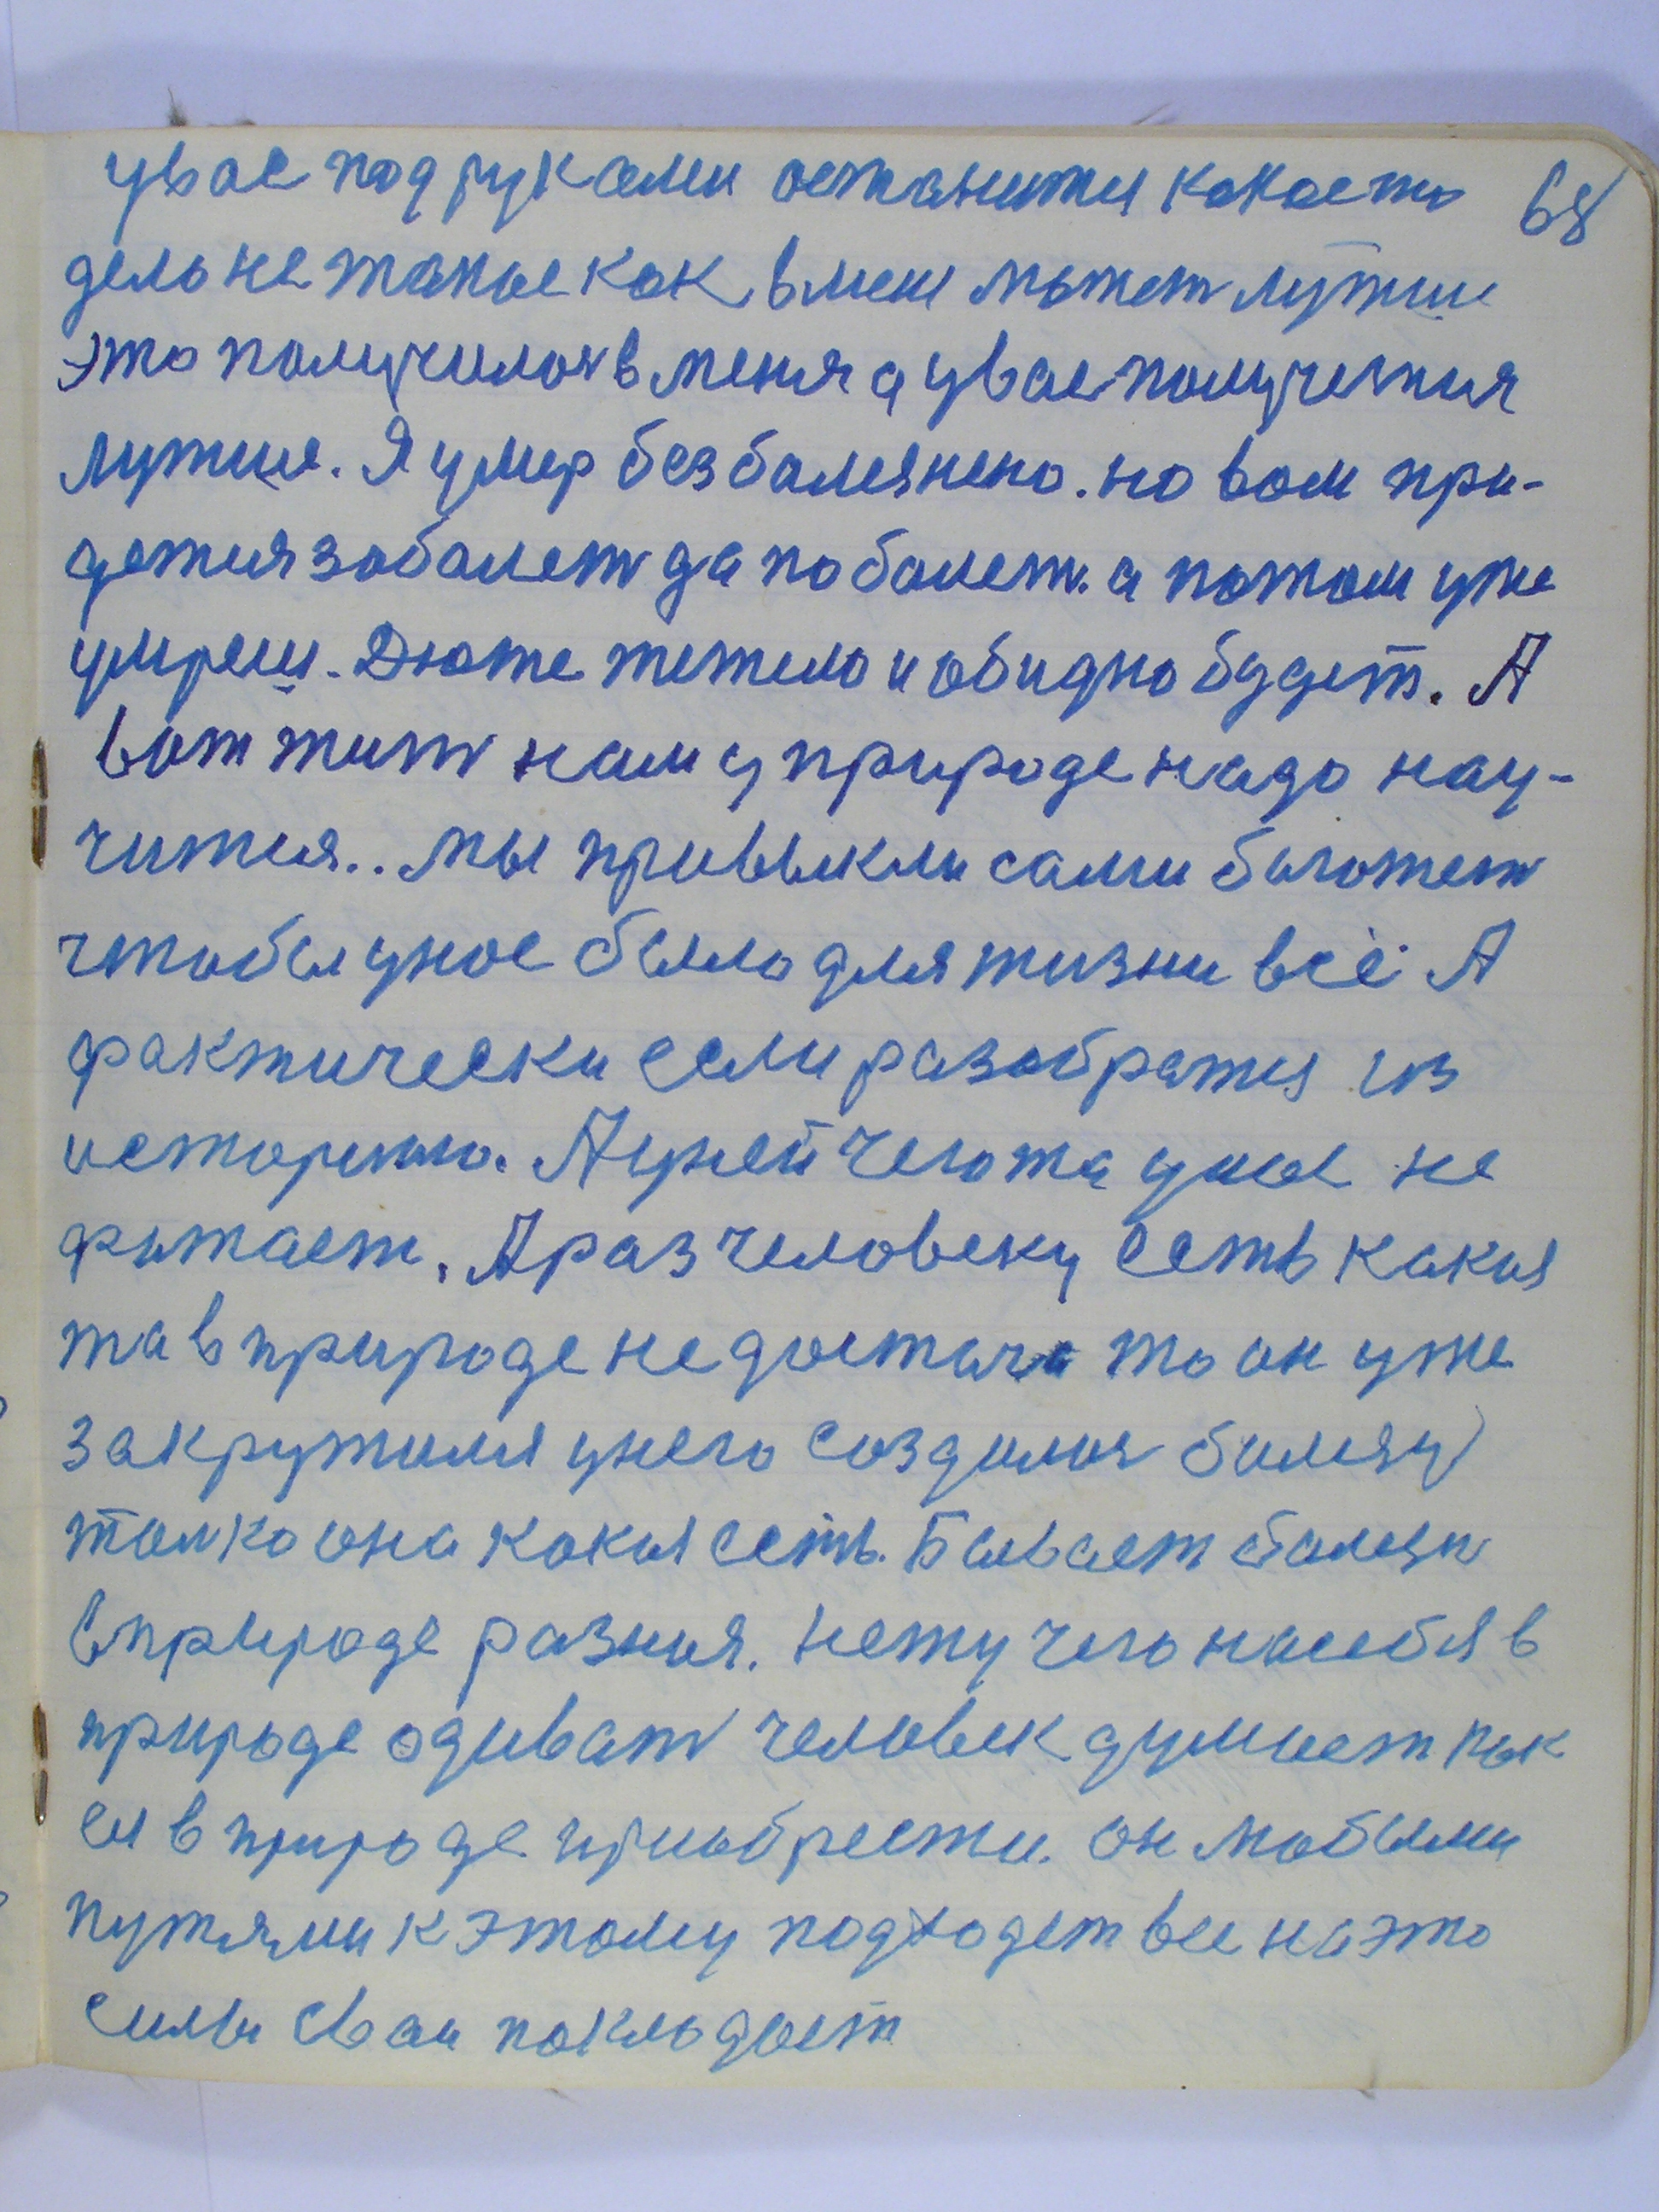 увас под руками останится какоето 68
дело не такое как вмене может лутши
это получилось в меня а увас получится
лутше. Я умер без болезнено. но вам при-
дется заболет да поболет. а потом уже
умреш. Дюже тежело и обидно будет. А
вот жит нам у природе надо нау-
читися.. мы привыкли сами
чтобы унас было для жизни всё. А
фактически если разобратся из
историю. А уней чегота уш не
фытает. А раз человеку есть какая
та в природе не достача то он уже
закружился унего создалася болезн
толко она какая есть. Бывает болезн
в природе разния. нету чего на себя в
природе одиват человек думает как
ея в природе приобрести. он любыми
путями к этому подходет все на это
силы сваи покладает